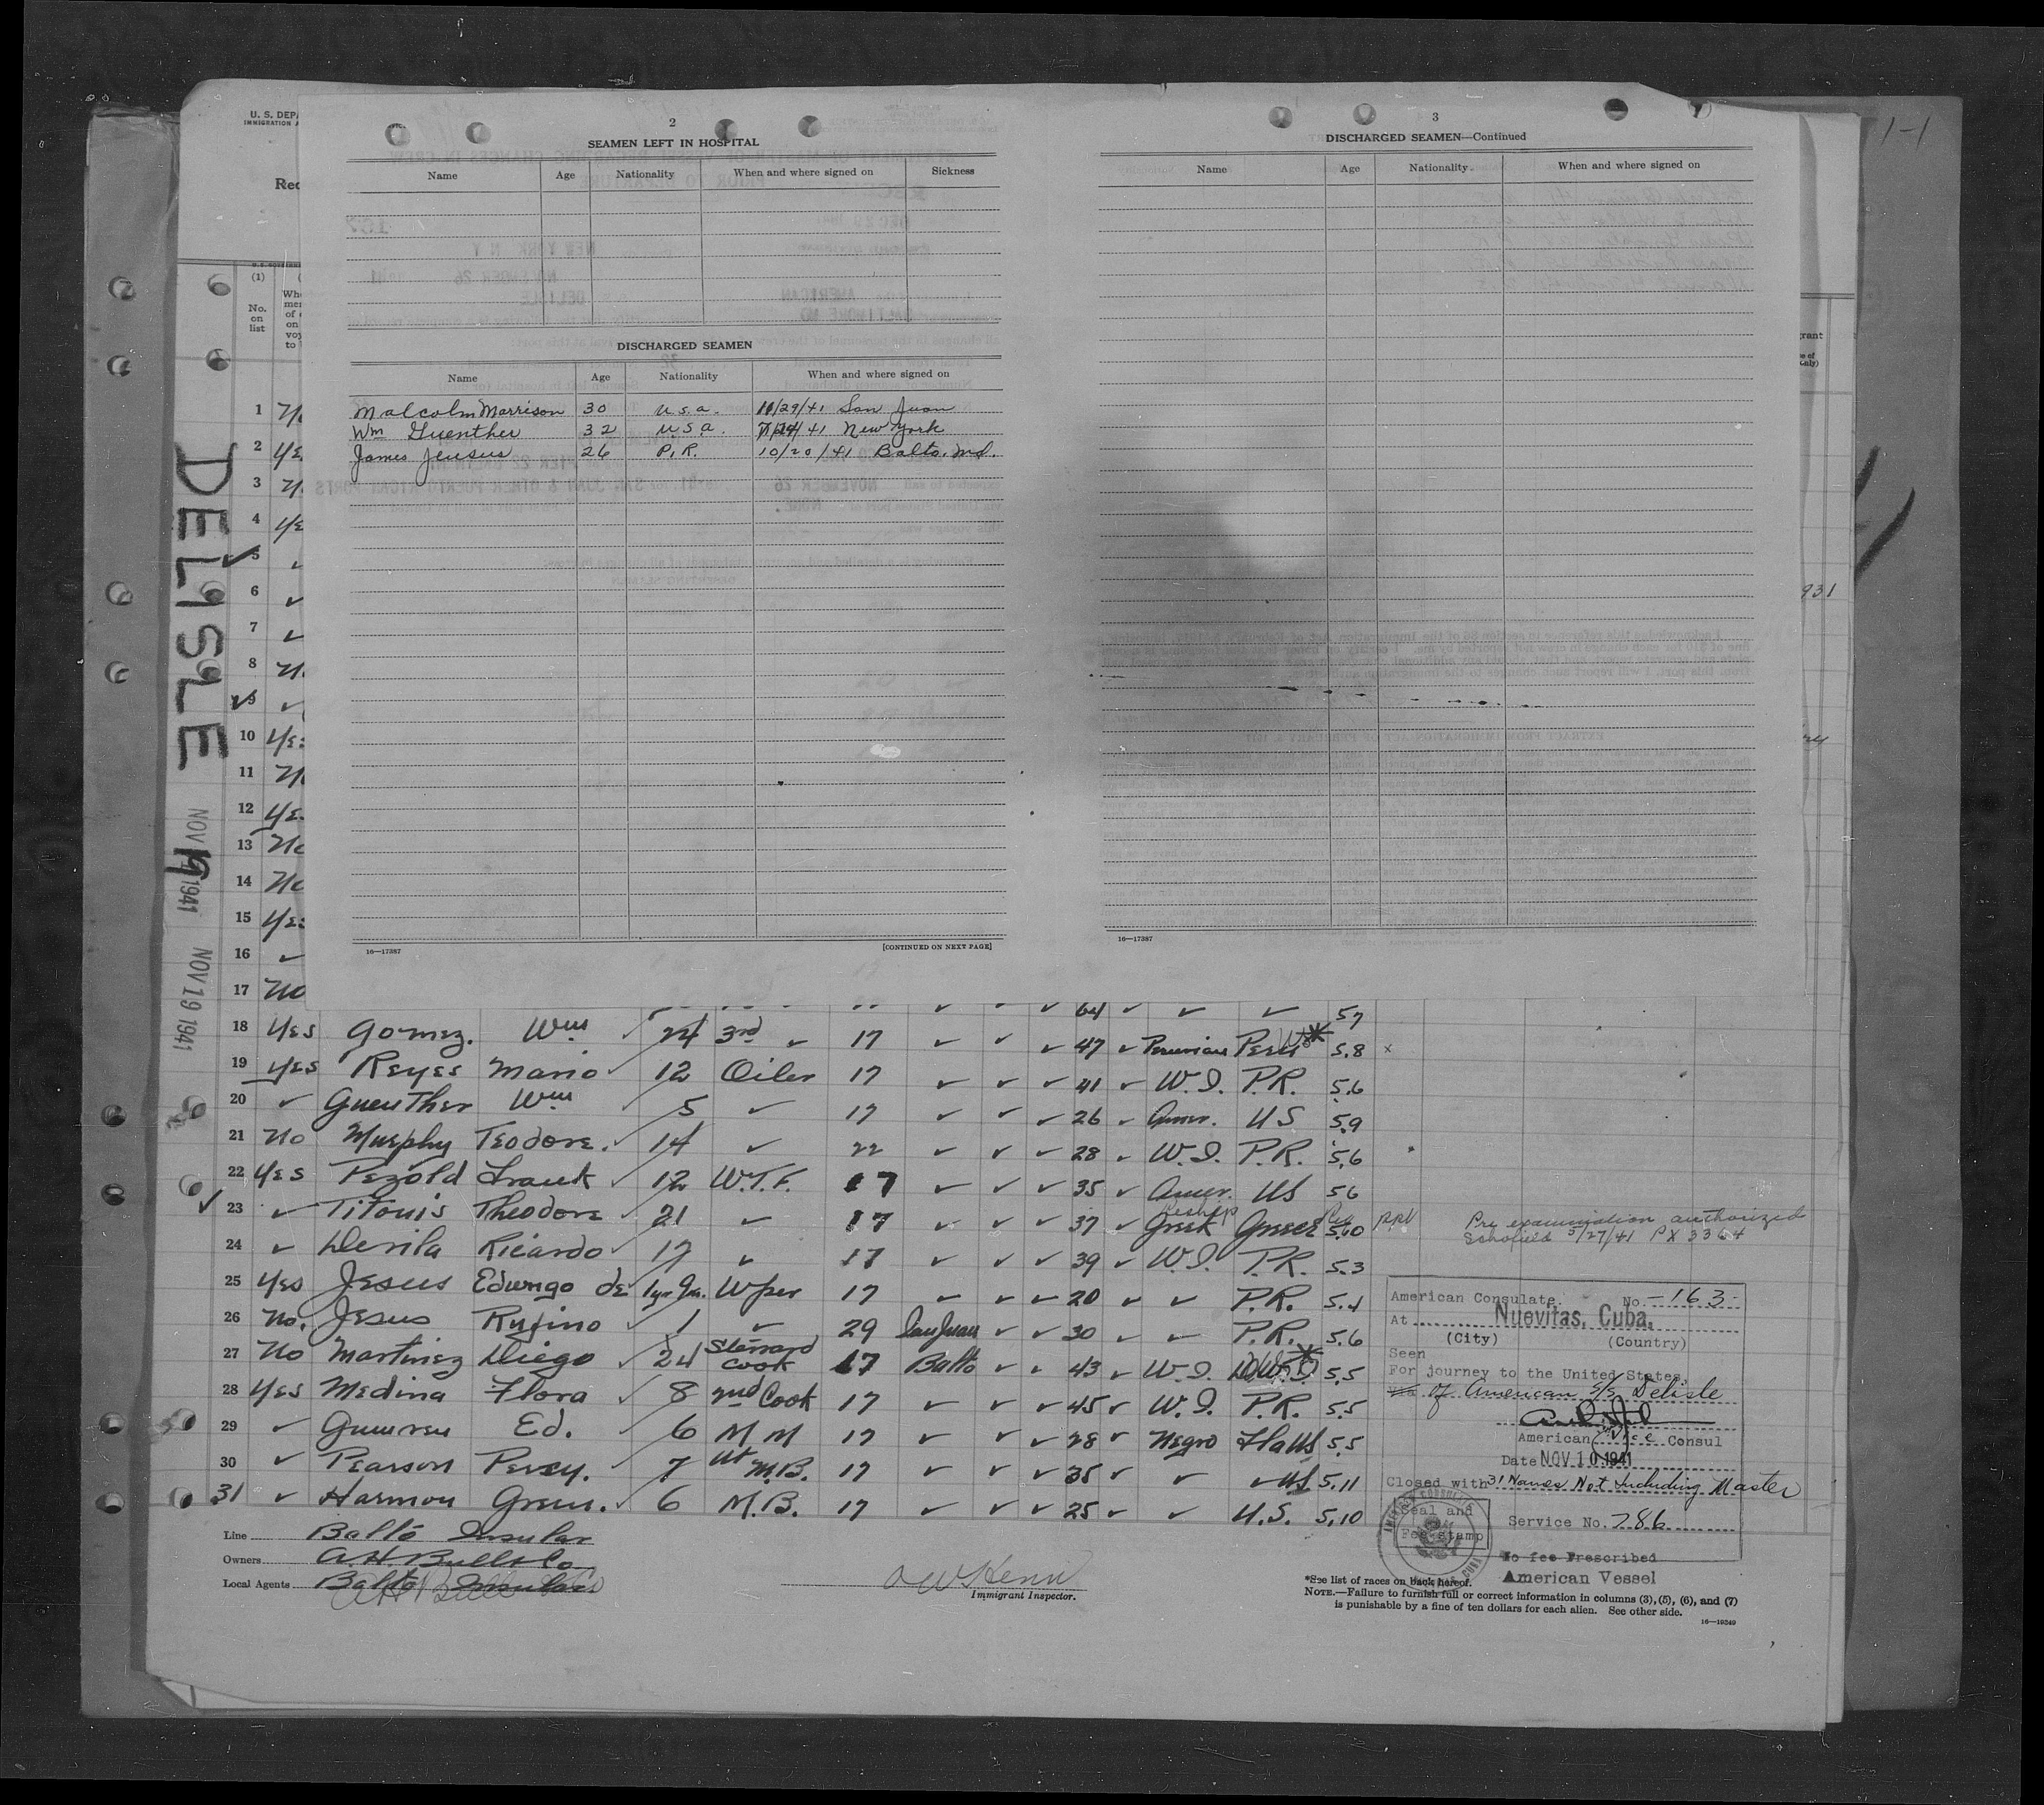 U. S. DEPA
IMMIGRATION A
Rec
2
SEAMEN LEFT IN HOSPITAL
Name Age Nationality When and where signed on Sickness
DISCHARGED SEAMEN
Name Age Nationality When and where signed on
Malcolm Morrison 30 U.S.A. 10/29/41 San Juan
Wm Guenther 32 U.S.A. 41 New York
James Jensus 26 P.R. 10/20/41 Balto. Md.
16—17387 [CONTINUED ON NEXT PAGE]
3
DISCHARGED SEAMEN—Continued
Name Age Nationality When and where signed on
16—17387
1-1
931
DELISLE
NOV 1941
NOV 19 1941
(1)
No. on list
1
2 Yes
3
4 Yes
5 ✓
6 ✓
7 ✓
8
9 ✓
10 Yes
11
12 Yes
13 No
14 No
15 Yes
16 ✓
17 No
64 ✓ ✓ ✓ 57
18 Yes Gomez. Wm ✓ 24 3rd ✓ 17 ✓ ✓ ✓ 47 ✓ Peruvian Peru 5.8 x
19 Yes Reyes Mario ✓ 12 Oiler 17 ✓ ✓ ✓ 41 ✓ W.I. P.R. 5.6
20 ✓ Guenther Wm ✓ 5 ✓ 17 ✓ ✓ ✓ 26 ✓ Amer. US 5.9
21 No Murphy Teodore. ✓ 14 ✓ 22 ✓ ✓ ✓ 28 ✓ W.I. P.R. 5.6
22 Yes Pezold Frank ✓ 12 W.T.F. 17 ✓ ✓ ✓ 35 ✓ Amer. US 56
23 ✓ Titonis Theodore ✓ 21 ✓ 17 ✓ ✓ ✓ 37 ✓ Greek Greece 5.10 ppt Pre examination authorized
Schofield 5/27/41 PX 3364
24 ✓ Devila Ricardo ✓ 17 ✓ 17 ✓ ✓ ✓ 39 ✓ W.I. P.R. 5.3
25 Yes Jesus Edwngo de 1yr 9m. Wper 17 ✓ ✓ ✓ 20 ✓ ✓ P.R. 5.4
26 No. Jesus Rufino ✓ 1 ✓ 29 San Juan ✓ ✓ 30 ✓ ✓ P.R. 5.6
27 No Martinez Diego ✓ 24 Steward Cook 17 Balto ✓ ✓ 43 ✓ W.I. 5.5
28 Yes Medina Flora ✓ 8 2nd Cook 17 ✓ ✓ ✓ 45 ✓ W.I. P.R. 5.5
29 ✓ Ed. ✓ 6 M M 17 ✓ ✓ ✓ 28 ✓ Negro 5.5
30 ✓ Pearson Percy. ✓ 7 Ut M.B. 17 ✓ ✓ ✓ 35 ✓ ✓ ✓ US. 5.11
31 ✓ Harmon Green. ✓ 6 M.B. 17 ✓ ✓ ✓ 25 ✓ ✓ U.S. 5.10
American Consulate. No. -163-
At Nuevitas, Cuba.
(City) (Country)
Seen
For journey to the United States,
of American S/S Delisle
American Vice Consul
Date NOV 10 1941
Closed with 31 Names Not Including Master
Seal and
Fee stamp
Service No. 786
No fee Prescribed
American Vessel
Line Balto Insular
Owners A.H. Bull & Co
Local Agents Balto Insular
Immigrant Inspector.
*See list of races on back hereof.
NOTE.—Failure to furnish full or correct information in columns (3), (5), (6), and (7)
is punishable by a fine of ten dollars for each alien. See other side.
16—19349